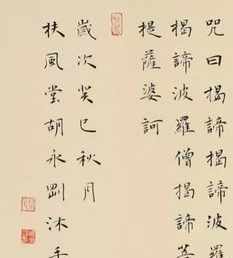 咒曰揭諦揭諦波羅
揭諦波羅僧揭諦菩
提薩婆訶
歲次癸巳秋月
扶風堂胡永剛沐手